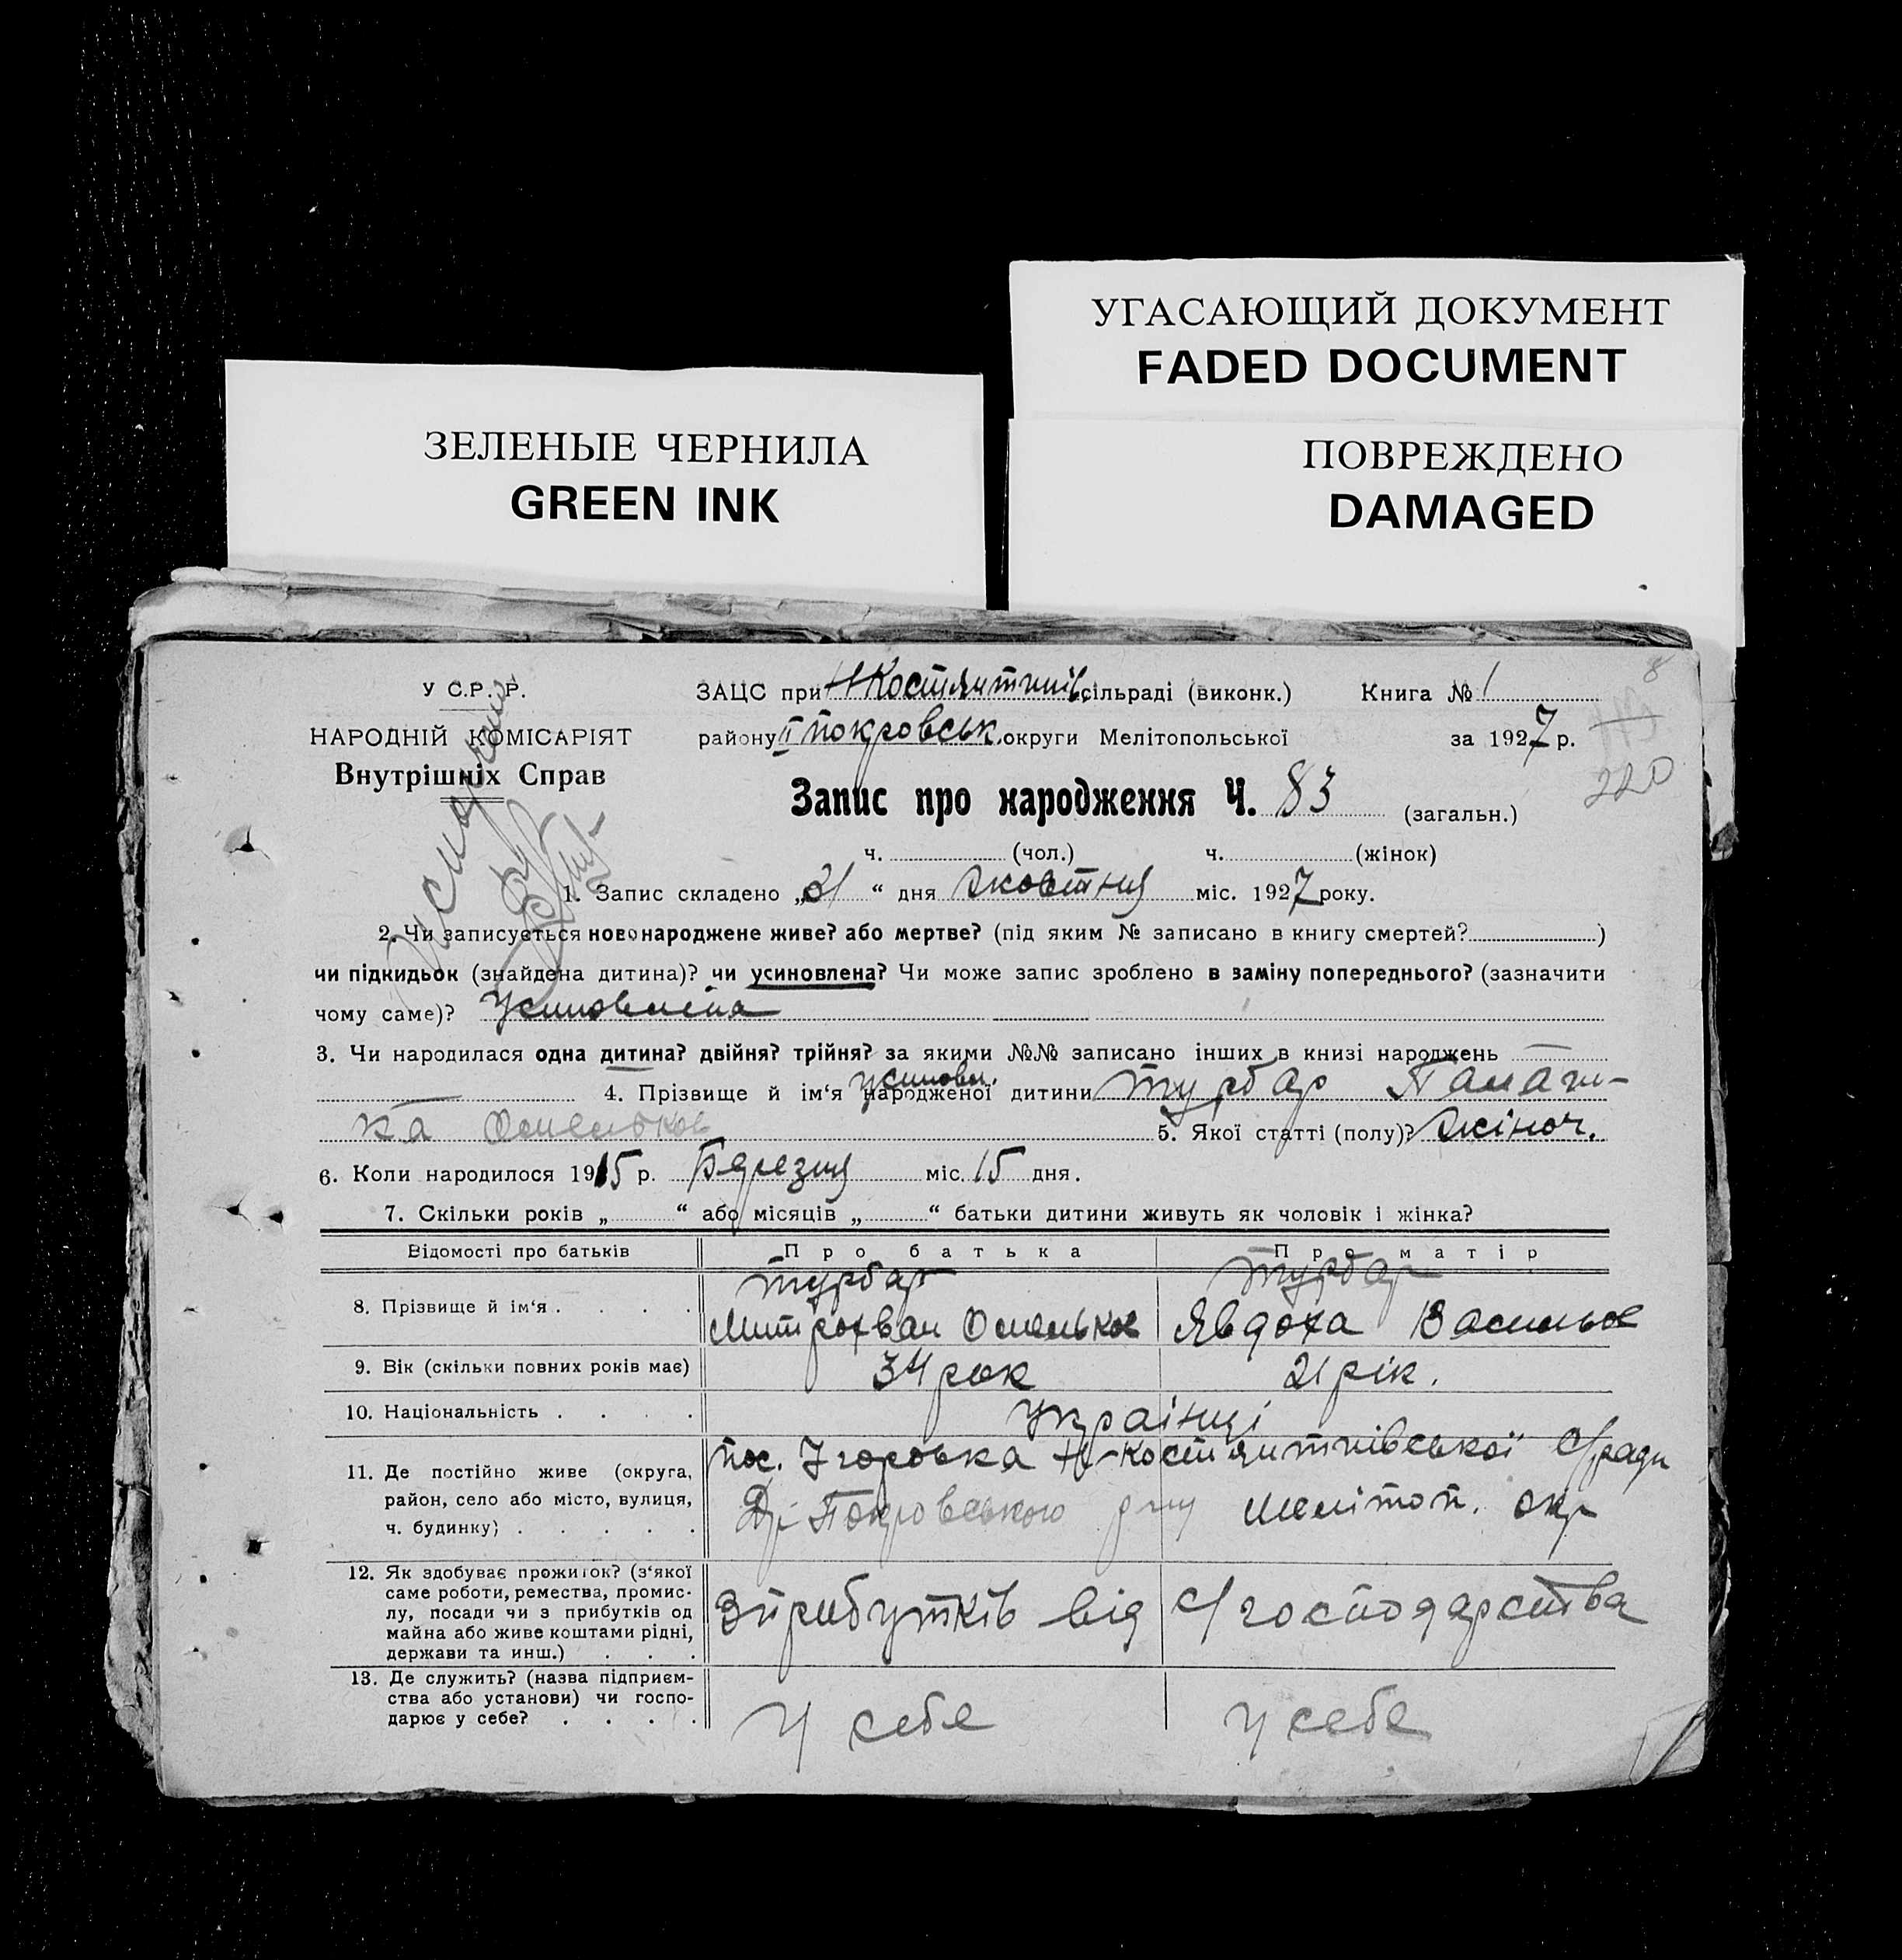 УГАСАЮЩИЙ ДОКУМЕНТ
FADED DOCUMENT
ЗЕЛЕНЫЕ ЧЕРНИЛА
GREEN INK
ПОВРЕЖДЕНО
DAMAGED
У С.Р.Р.
НАРОДНІЙ КОМІСАРІЯТ
Внутрішніх Справ
ЗАЦС при Н Костянтинів. сільраді (виконк.) Книга № 1
району ІІ покровськ. округи Мелітопольської за 1927 р.
220
Запис про народження Ч. 83 (загальн.)
ч. (чол.) ч. (жінок)
1. Запис складено „31“ дня жовтня міс. 1927 року.
2. Чи записується новонароджене живе? або мертве? (під яким № записано в книгу смертей? )
чи підкидьок (знайдена дитина)? чи усиновлена? Чи може запис зроблено в заміну попереднього? (зазначити
чому саме)? Усиновлена
3. Чи народилася одна дитина? двійня? трійня? за якими №№ записано інших в книзі народжень —
усиновл.
4. Прізвище й ім‘я народженої дитини Турбар Палаж-
ка Омельков 5. Якої статті (полу)? жіноч.
6. Коли народилося 1915 р. Березня міс. 15 дня.
7. Скільки років „ “ або місяців „ “ батьки дитини живуть як чоловік і жінка?
Відомості про батьків Про батька Про матір
Турбар Турбар
8. Прізвище й ім‘я . . . . Митрохван Омельков Явдоха Васильов
9. Вік (скільки повних років має) 34 рок 21 рік.
10. Національність . . . . українці
11. Де постійно живе (округа, район, село або місто, вулиця, ч. будинку) . . . . .
пос. Ігоровка Н-Костянтинівської С/ради
Др-Покровського р-ну Меліт оп. окр
12. Як здобуває прожиток? (з‘якої
саме роботи, ремества, промис-
лу, посади чи з прибутків од
майна або живе коштами рідні,
держави та инш.) . . .
З прибутків від с/господарства
13. Де служить? (назва підприєм-
ства або установи) чи госпо-
дарює у себе? . . . .
у себе у себе